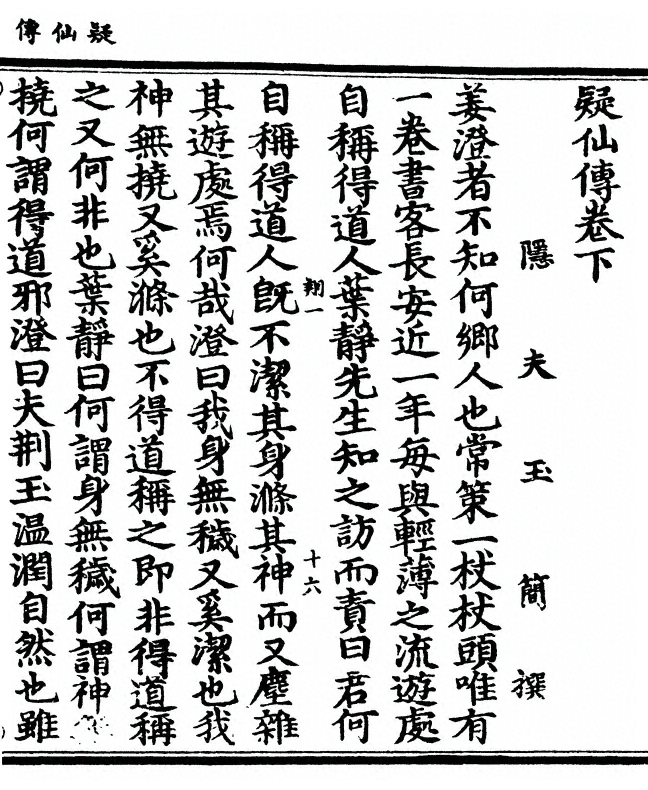 疑仙傳
疑仙傳卷下
隱夫玉簡撰
姜澄者不知何鄉人也常策一杖杖頭唯有
一卷書客長安近一年每與輕薄之流遊處
自稱得道人葉靜先生知之訪而責曰君何
翔一
十六
自稱得道人旣不潔其身滌其神而又塵雜
其遊處焉何哉澄曰我身無穢又奚潔也我
神無撓又奚滌也不得道稱之即非得道稱
之又何非也葉靜曰何謂身無穢何謂神
撓何謂得道邪澄曰夫荆玉温潤自然也雖